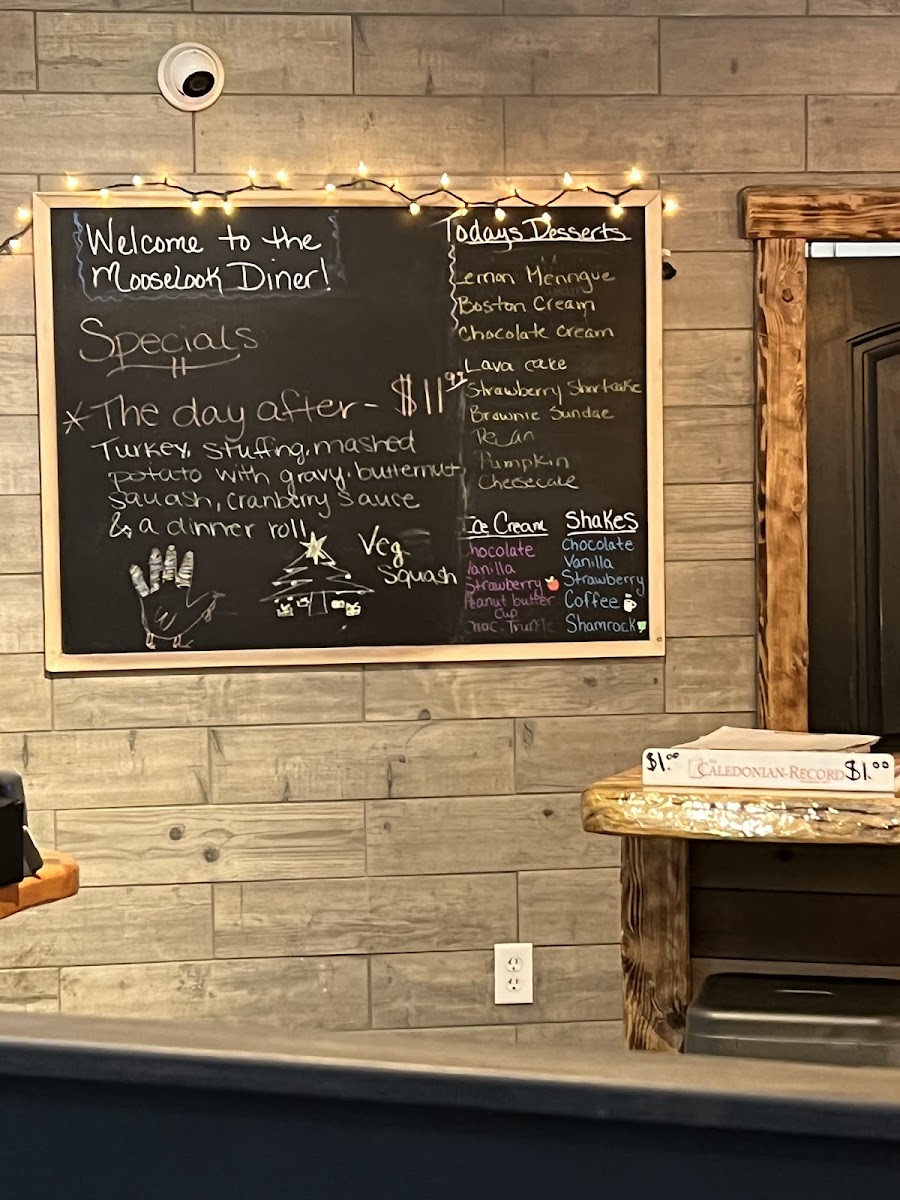 Welcome to the
Mooselook Diner!
Specials
*The day after- $11.99
Turkey, stuffing, mashed
potato with gravy, butternut,
squash, cranberry sauce
& a dinner roll
Veg
Squash
Todays Desserts
Lemon Meringue
Boston Cream
Chocolate cream
Lava cake
Strawberry Shortcake
Brownie Sundae
Pecan
Pumpkin
Cheesecake
Ice Cream
Chocolate
Vanilla
Strawberry
Peanut butter
Cup
Choc. Truffle
Shakes
Chocolate
Vanilla
Strawberry
Coffee
Shamrock
$1.00 THE CALEDONIAN-RECORD $1.00